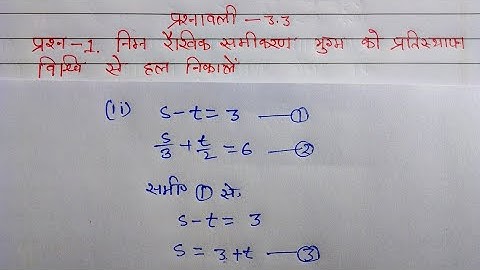 प्रश्नावली - 3.3
प्रश्न-1. निम्न रैखिक समीकरण युग्म को प्रतिस्थापन
विधि से हल निकालें
(ii) s-t = 3 —①
s/3 + t/2 = 6 —②
समी० ① से,
s-t = 3
s = 3+t —③